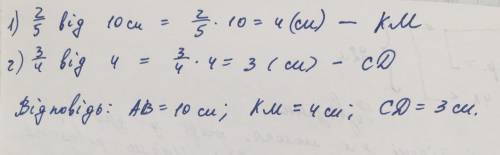 1) 2/5 від 10 см = 2/5 · 10 = 4 (см) — КМ
2) 3/4 від 4 = 3/4 · 4 = 3 (см) — CD
Відповідь: AB = 10 см; КМ = 4 см; CD = 3 см.